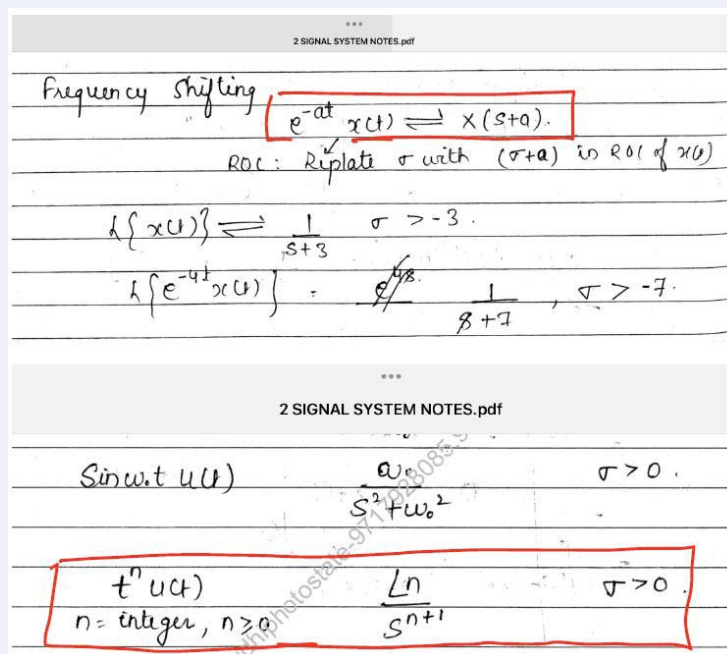 •••
2 SIGNAL SYSTEM NOTES.pdf
Frequency Shifting
e^{-at} x(t) ⇌ X(s+a).
ROC : Riplate σ with (σ+a) in ROC of x(t)
L{x(t)} ⇌ 1/(s+3) σ > -3.
L{e^{-4t} x(t)} = 1/(s+7), σ > -7.
•••
2 SIGNAL SYSTEM NOTES.pdf
Sin ω₀t u(t) ω₀/(s²+ω₀²) σ > 0.
t^n u(t) ∟n/s^{n+1} σ > 0.
n = integer, n ≥ 0
photostate-9717928085